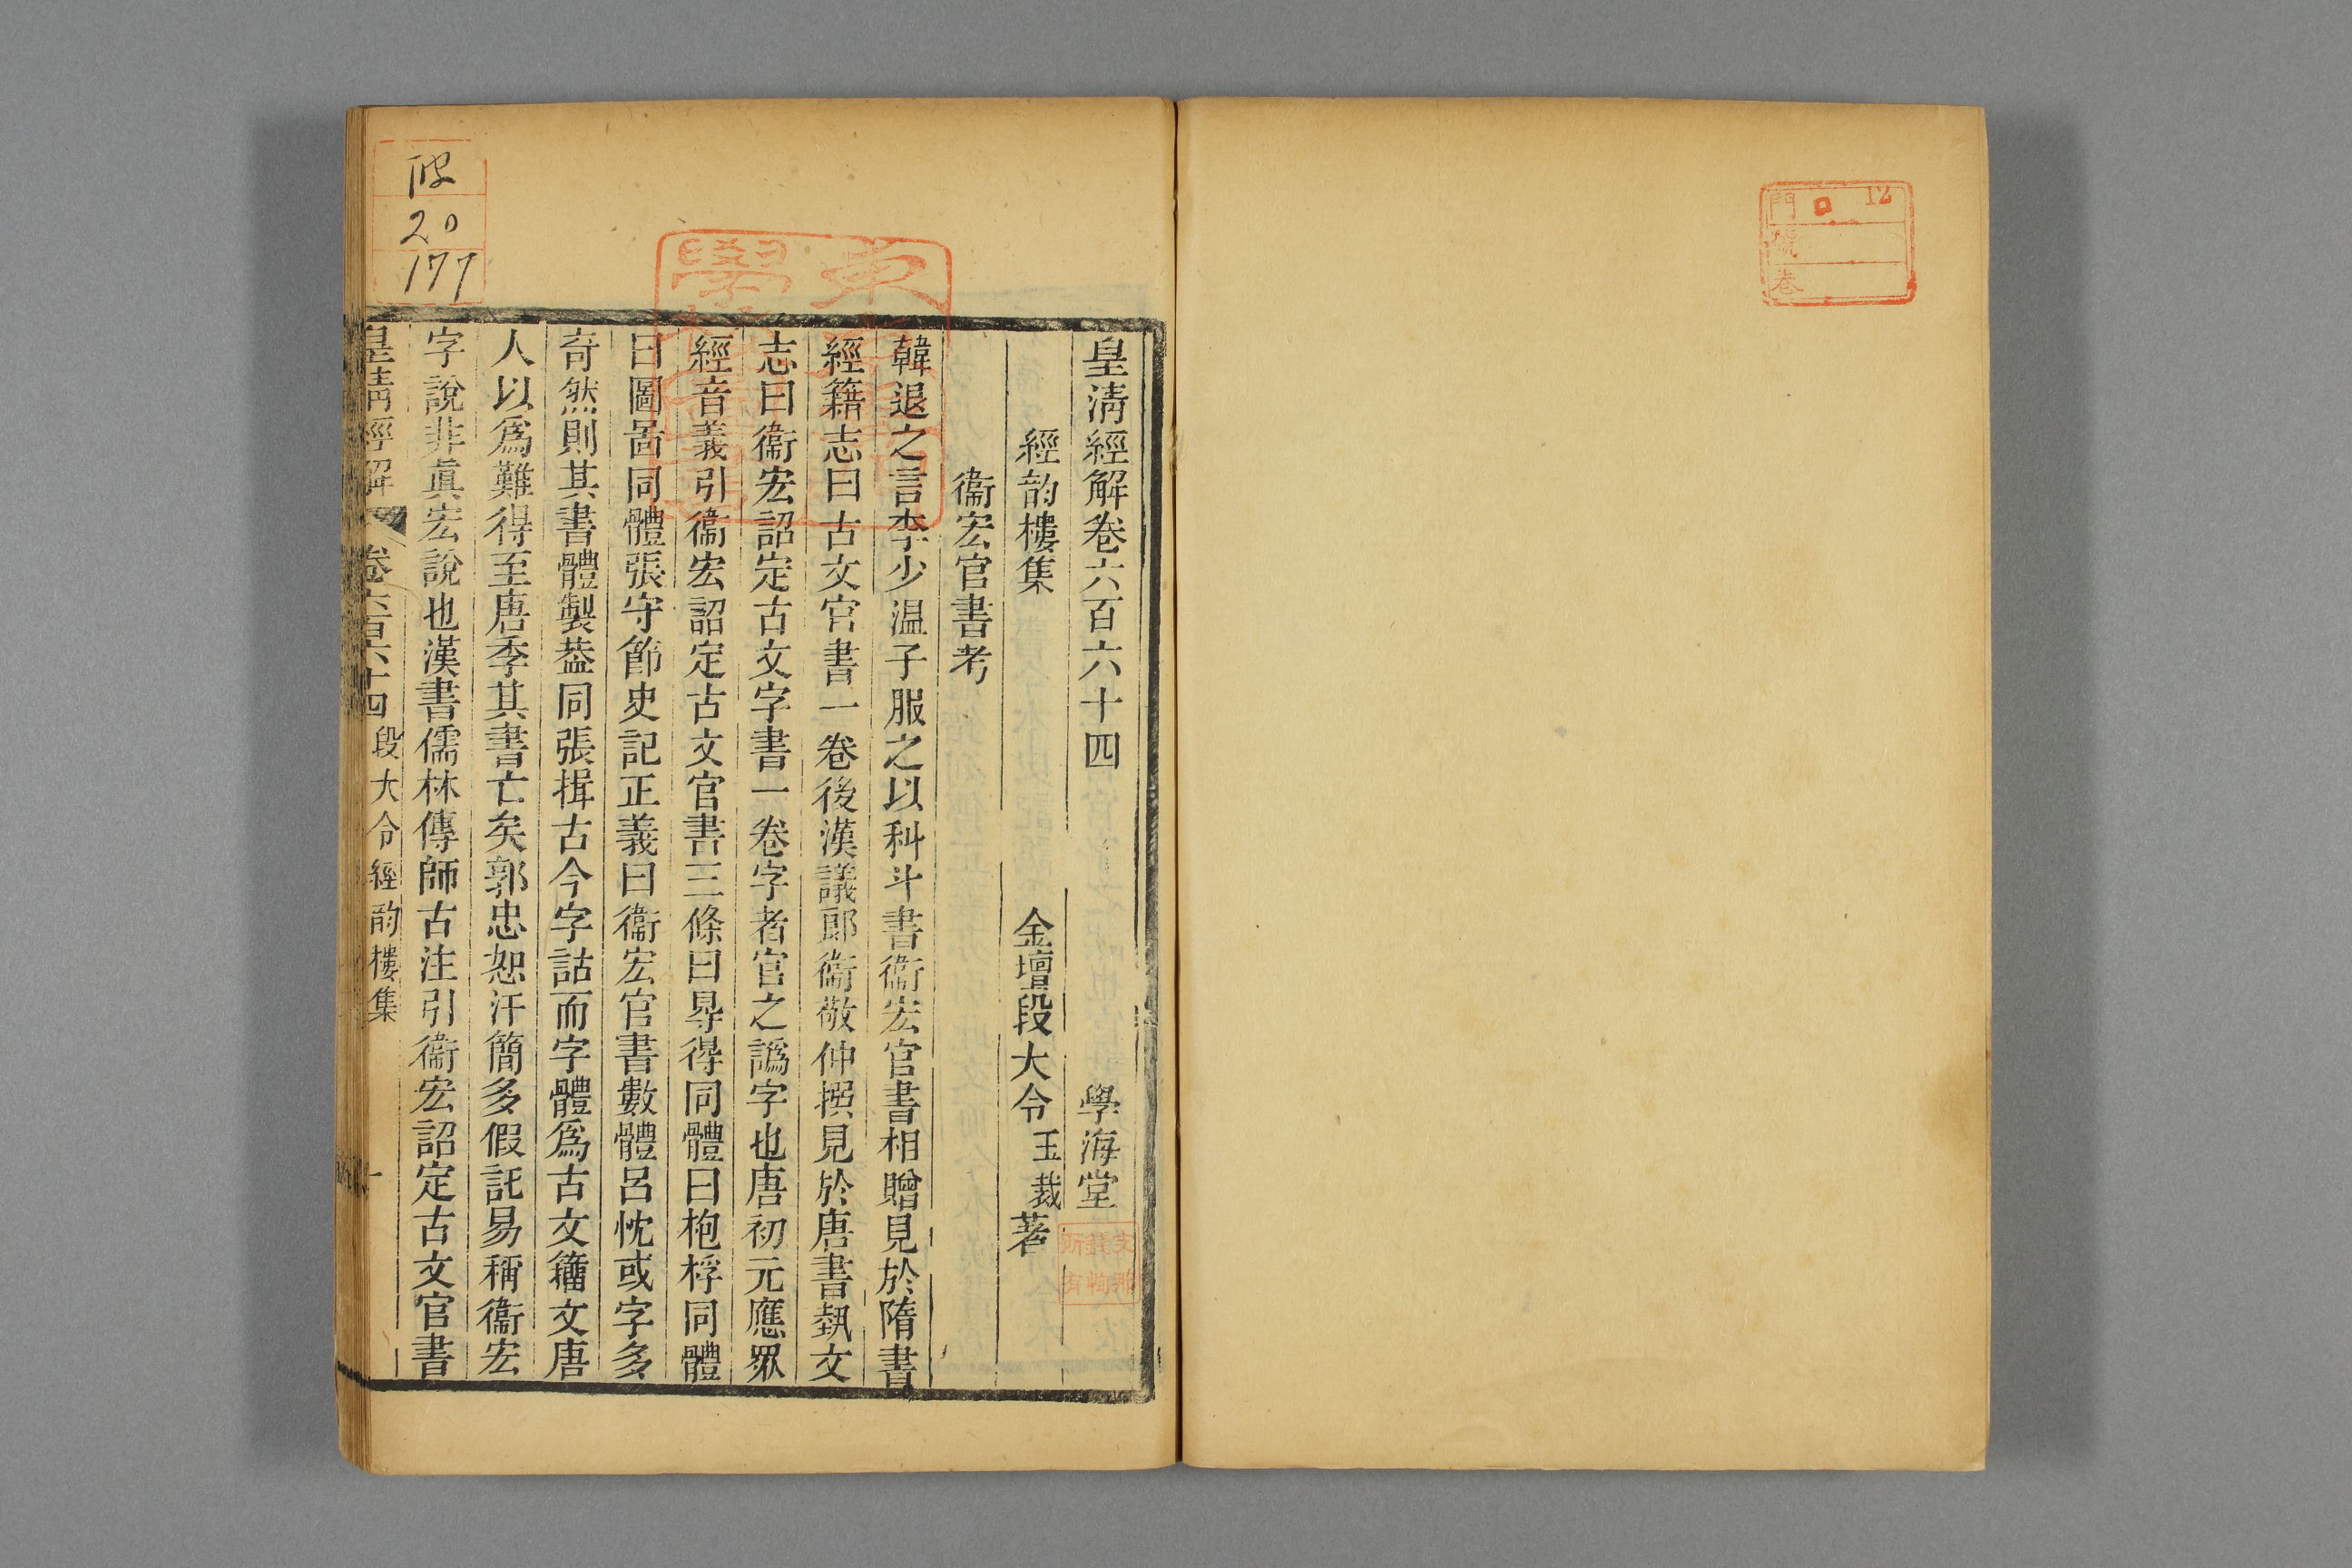 12
門
號
卷
皇淸經解卷六百六十四 學海堂
經韵樓集 金壇段大令玉裁著
衞宏官書考
韓退之言李少温子服之以科斗書衞宏官書相贈見於隋書
經籍志曰古文官書一卷後漢議郞衞敬仲撰見於唐書埶文
志曰衞宏詔定古文字書一卷字者官之譌字也唐初元應眾
經音義引衞宏詔定古文官書三條曰㝵得同體曰枹桴同體
曰圖啚同體張守節史記正義曰衞宏官書數體呂忱或字多
奇然則其書體製葢同張揖古今字詁而字體爲古文籒文唐
人以爲難得至唐季其書亡矣郭忠恕汗簡多假託易稱衞宏
字說非眞宏說也漢書儒林傳師古注引衞宏詔定古文官書
皇淸經解 卷六百六十四 段大令經韵樓集 一
20
177